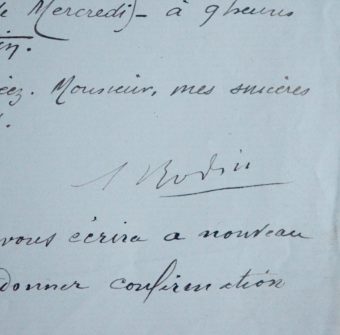 e Mercredi) - à 9 heures
in.
éez. Monsieur, mes sincères
A Rodin
vous écrira a nouveau
donner confirmation